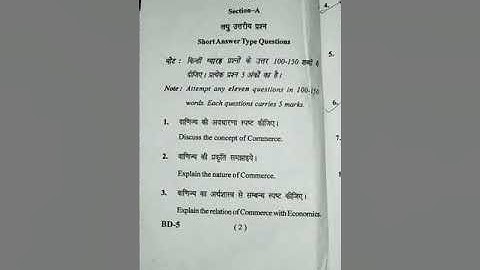 Section–A
लघु उत्तरीय प्रश्न
Short Answer Type Questions
नोट : किन्हीं ग्यारह प्रश्नों के उत्तर 100-150 शब्दों में
दीजिए। प्रत्येक प्रश्न 5 अंकों का है।
Note : Attempt any eleven questions in 100-150
words. Each questions carries 5 marks.
1. वाणिज्य की अवधारणा स्पष्ट कीजिए।
Discuss the concept of Commerce.
2. वाणिज्य की प्रकृति समझाइये।
Explain the nature of Commerce.
3. वाणिज्य का अर्थशास्त्र से सम्बन्ध स्पष्ट कीजिए।
Explain the relation of Commerce with Economics.
BD-5
( 2 )
4.
5.
6.
7.
8.